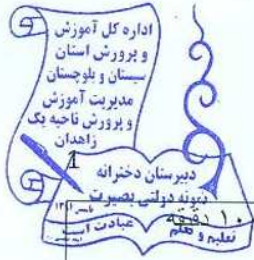 اداره کل آموزش
و پرورش استان
سیستان و بلوچستان
مدیریت آموزش
و پرورش ناحیه یک
زاهدان
1
دبیرستان دخترانه
نمونه دولتی بصیرت
۱۰ دقیقه
تعلیم و تعلم عبادت است